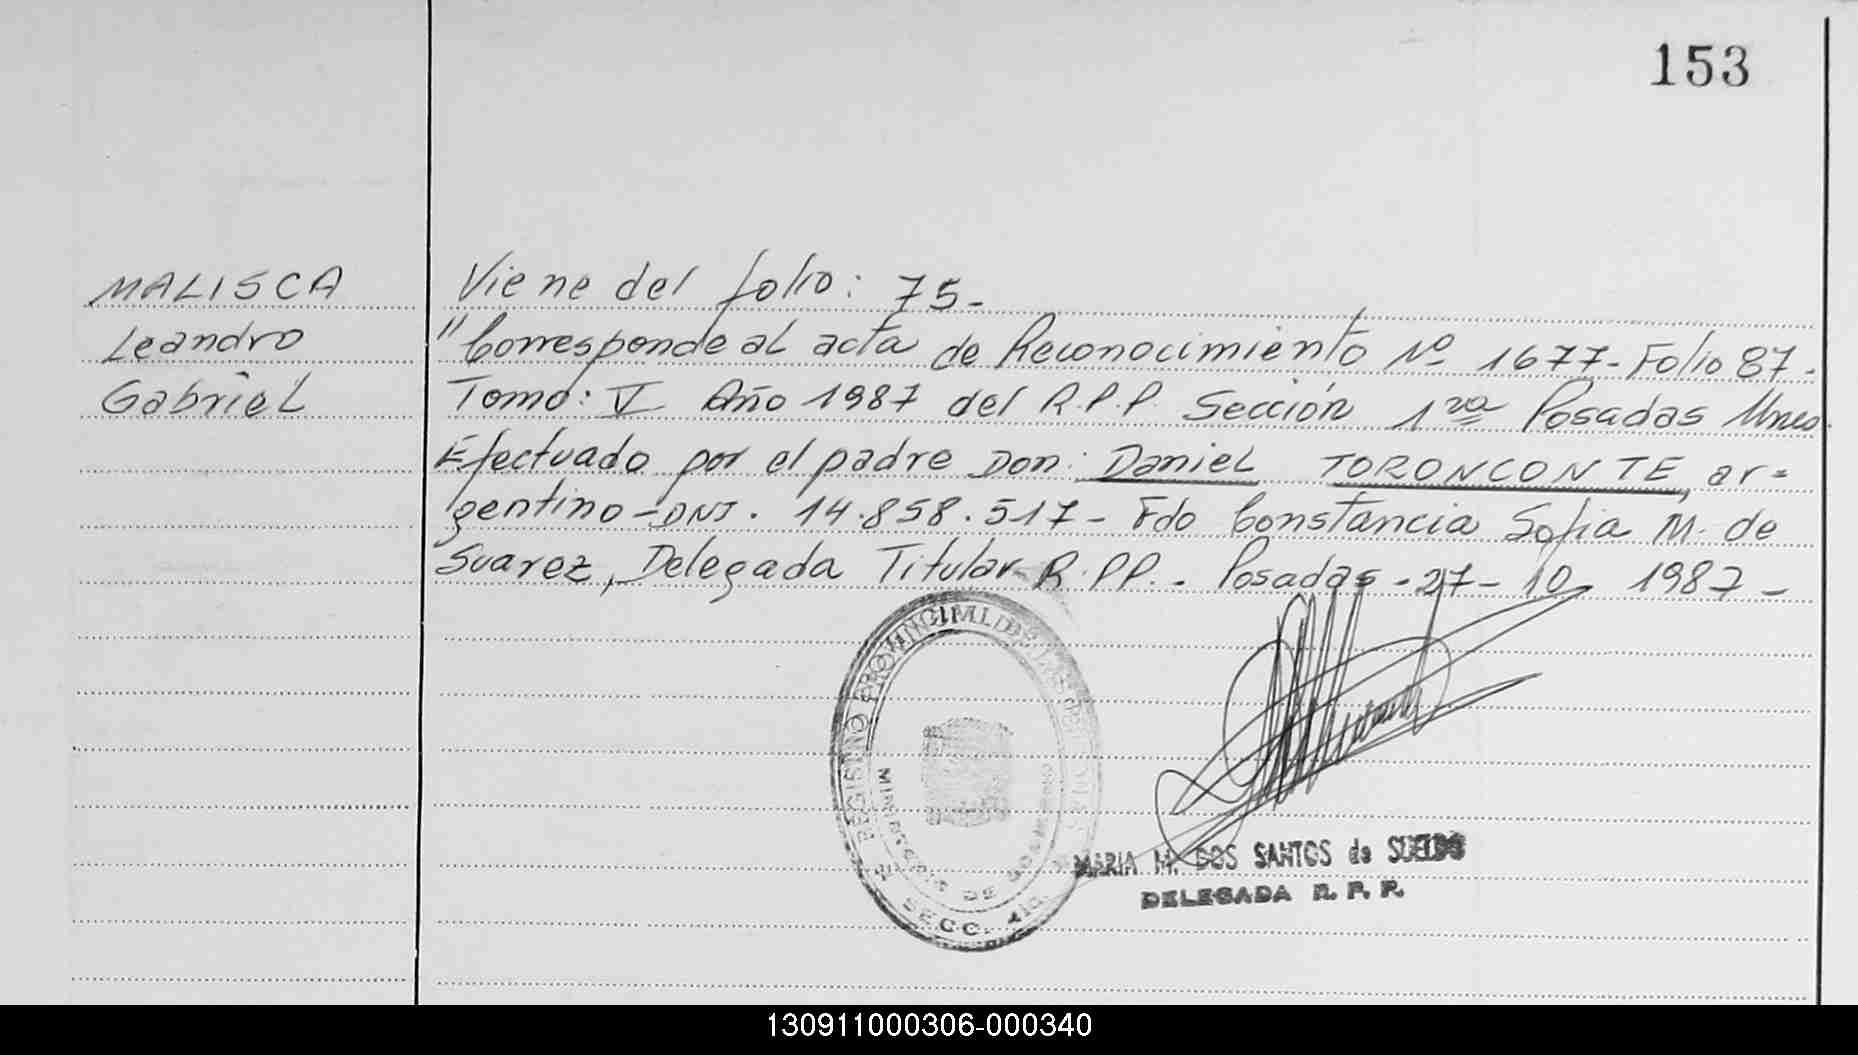 153
MALISCA
Leandro
Gabriel
Viene del folio: 75-
"Corresponde al acta de Reconocimiento Nº 1677- Folio 87-
Tomo: V Año 1987 del R.P.P. Sección 1ra Posadas Mnes.
Efectuado por el padre Don: Daniel TORONCONTE, ar=
gentino - DNI. 14.858.517- Fdo Constancia Sofia M. de
Suarez, Delegada Titular R.PP.- Posadas -27-10 1987-
REGISTRO PROVINCIAL DE LAS PERSONAS
MINISTERIO DE GOBIERNO
SECC. 4ta
MARIA M. DOS SANTOS de SUELDO
DELEGADA R. P. P.
130911000306-000340